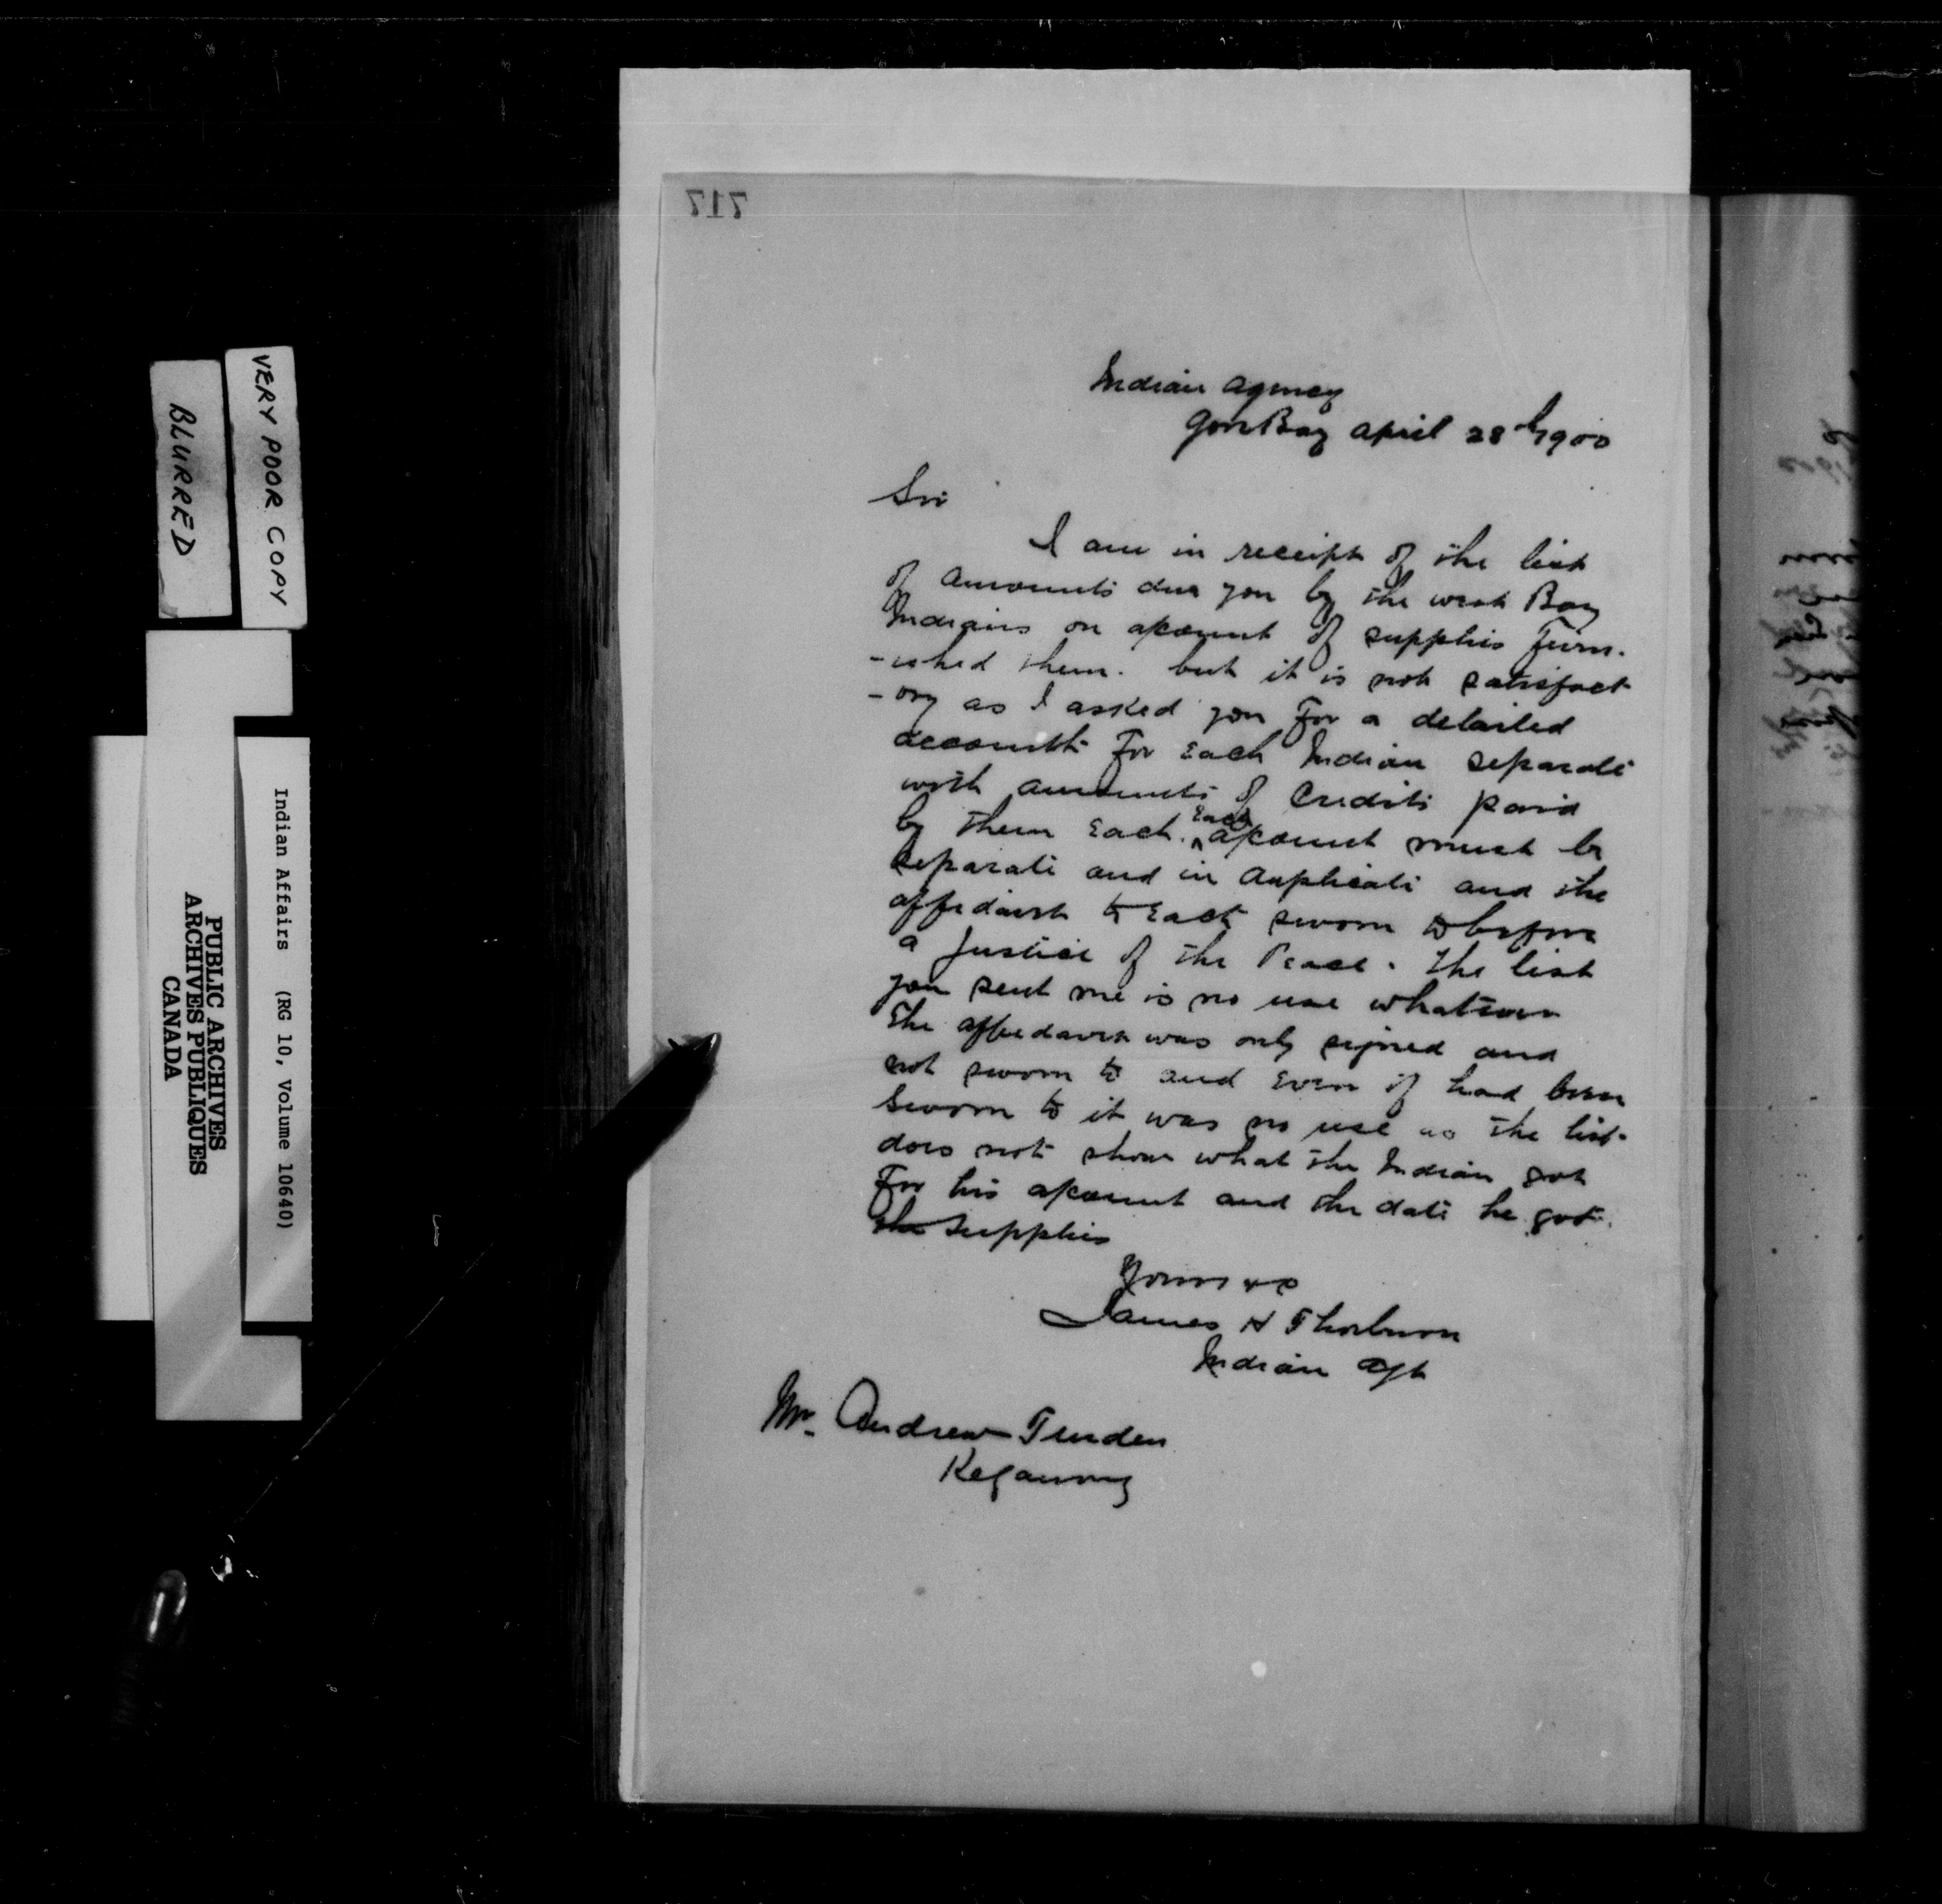 717
Indian Agency
Gore Bay April 28th 1900
Sir
I am in receipt of the list
of amounts due you by the west Bay
Indians on account of supplies furn-
-ished them. but it is not satisfact
-ory as I asked you for a detailed
account for Each Indian separate
with amounts of Credits paid
by them Each. Each account must be
separate and in duplicate and the
affidavit to Each sworn to before
a Justice of the Peace. The list
you sent me is no use whatever
The affidavit was only signed and
not sworn to and Even if had been
sworn to it was no use as the list
does not show what the Indian got
For his account and the date he got
the supplies
Yours &c
James H Thorburn
Indian Agt
Mr. Andrew
VERY POOR COPY
BLURRED
Indian Affairs (RG 10, Volume 10640)
PUBLIC ARCHIVES
ARCHIVES PUBLIQUES
CANADA